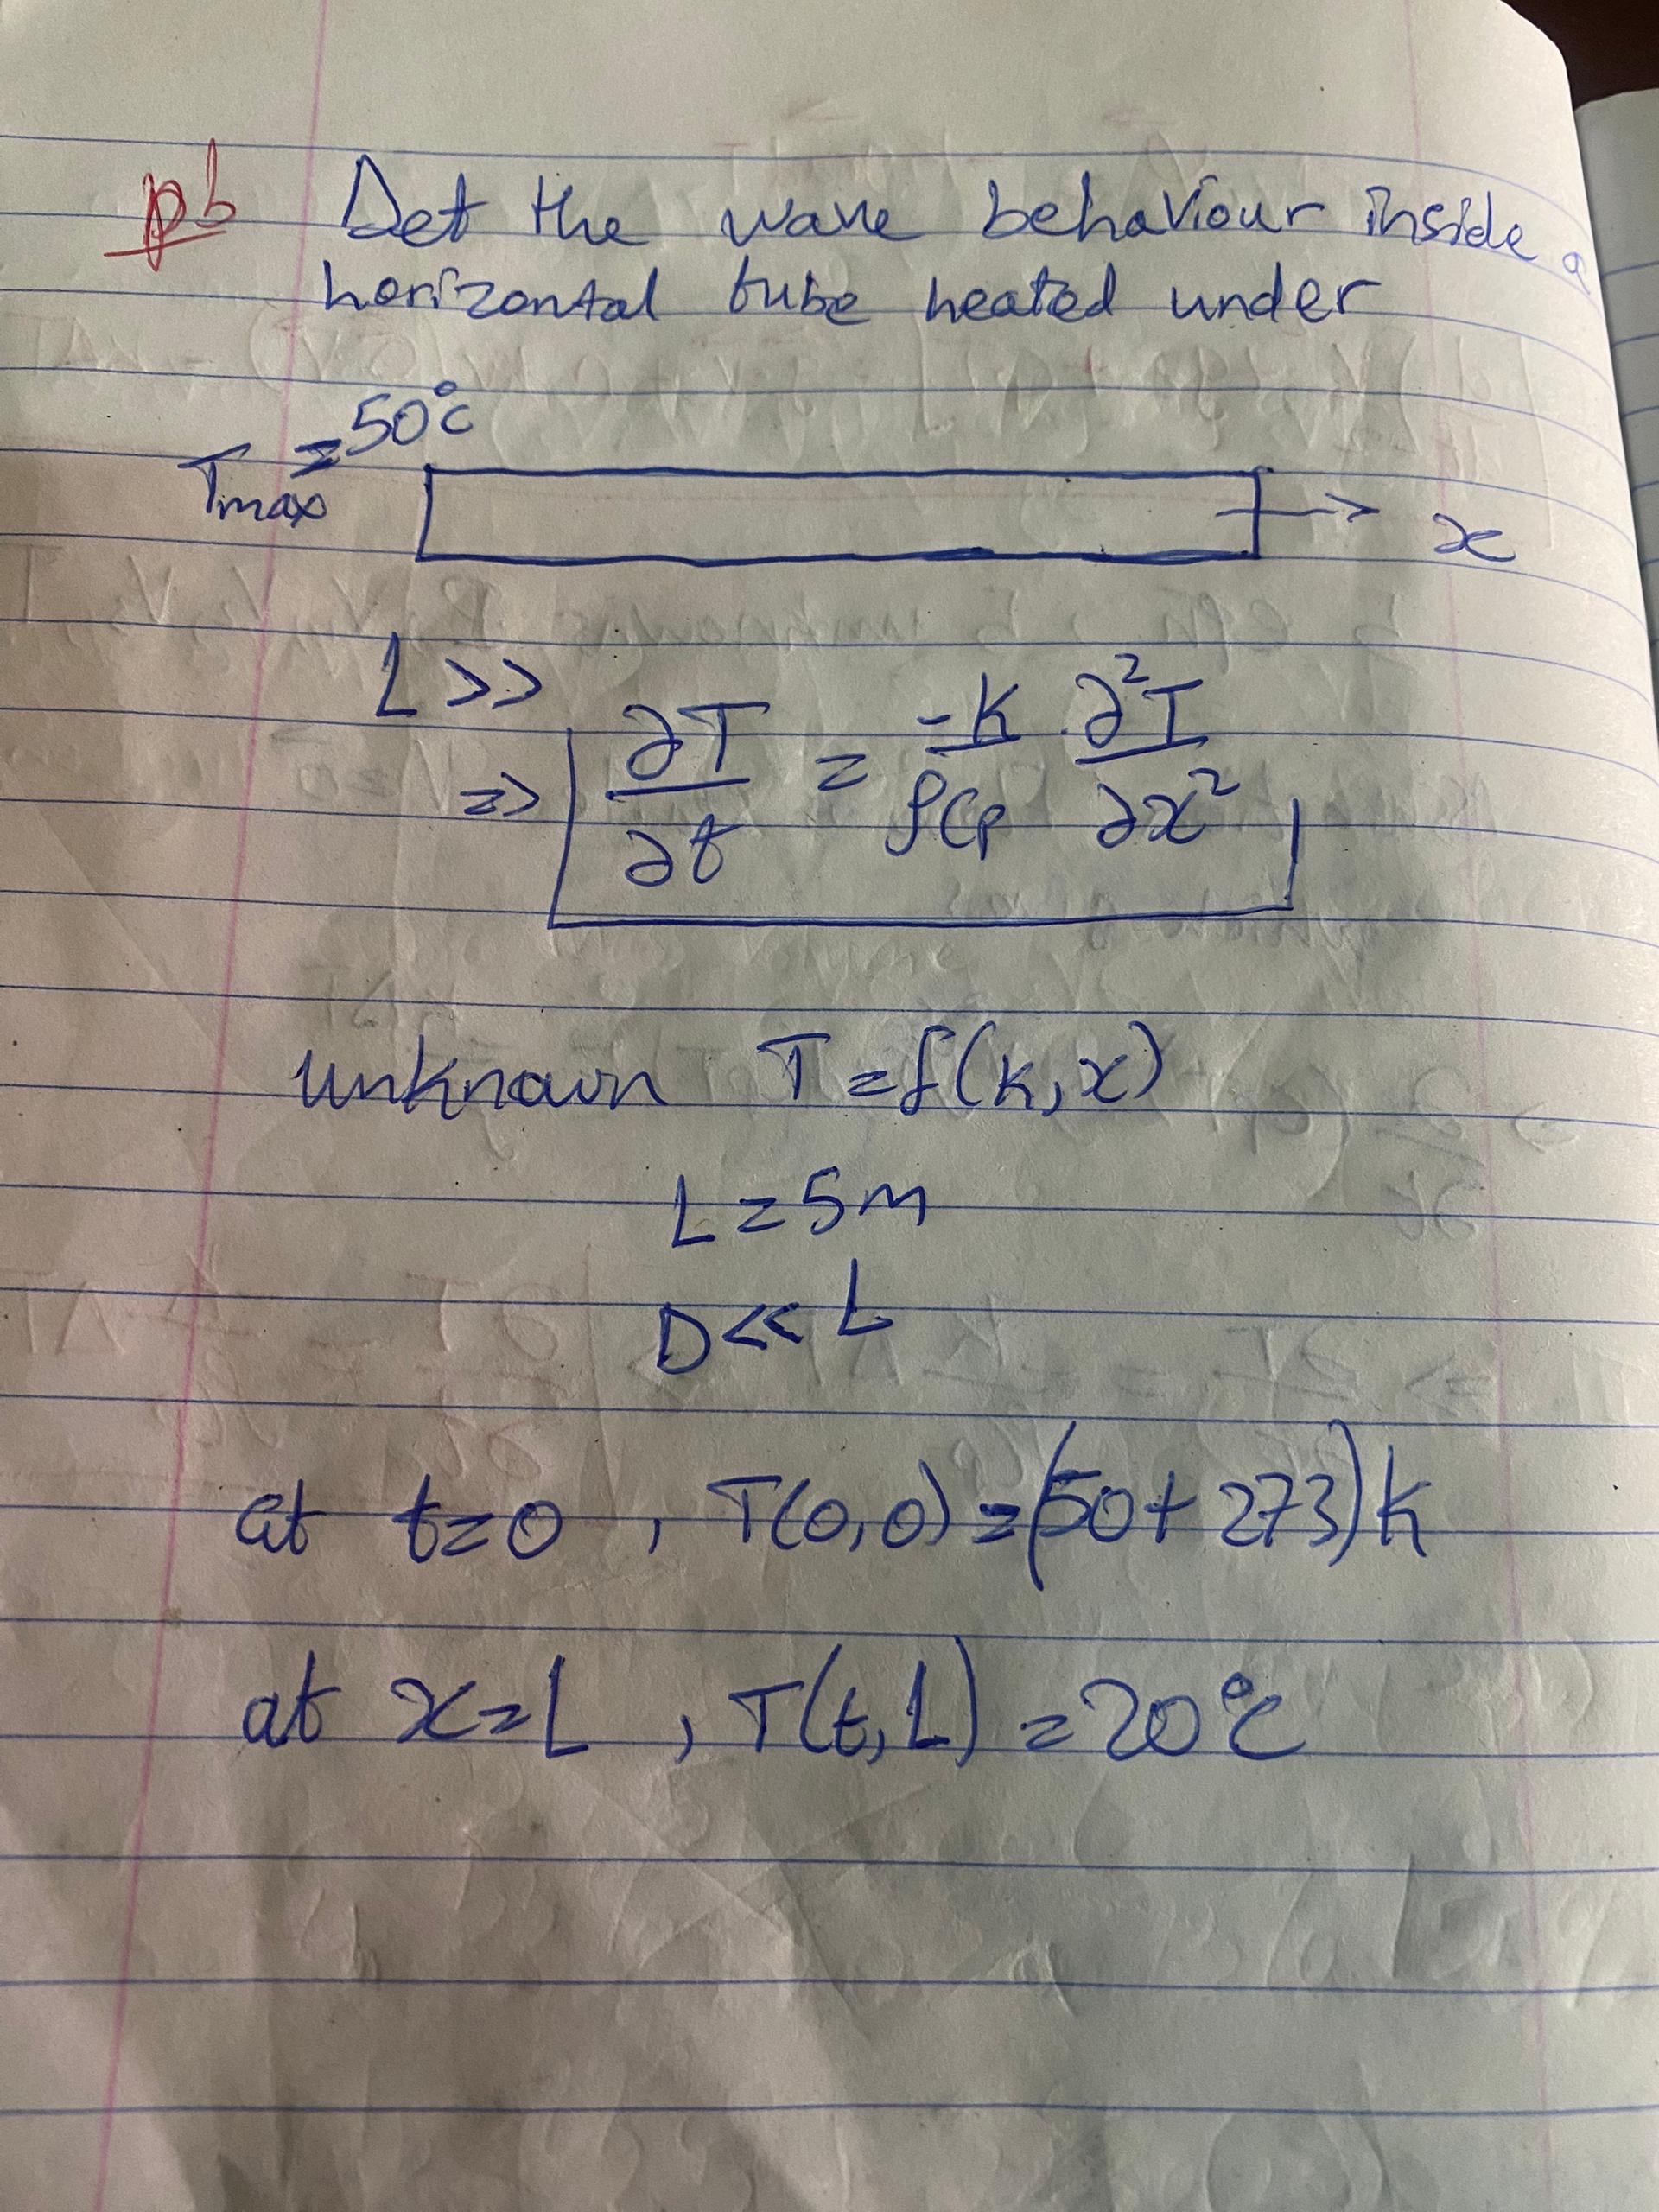 pb Det the wave behaviour inside a
horizontal tube heated under
Tmax = 50°C
x
L >>
=> ∂T/∂t = -K/ρCp ∂²T/∂x²
unknown T = f(k,x)
L = 5m
D << L
at t=0 , T(0,0) = (50+273)k
at x=L , T(t,L) = 20°C